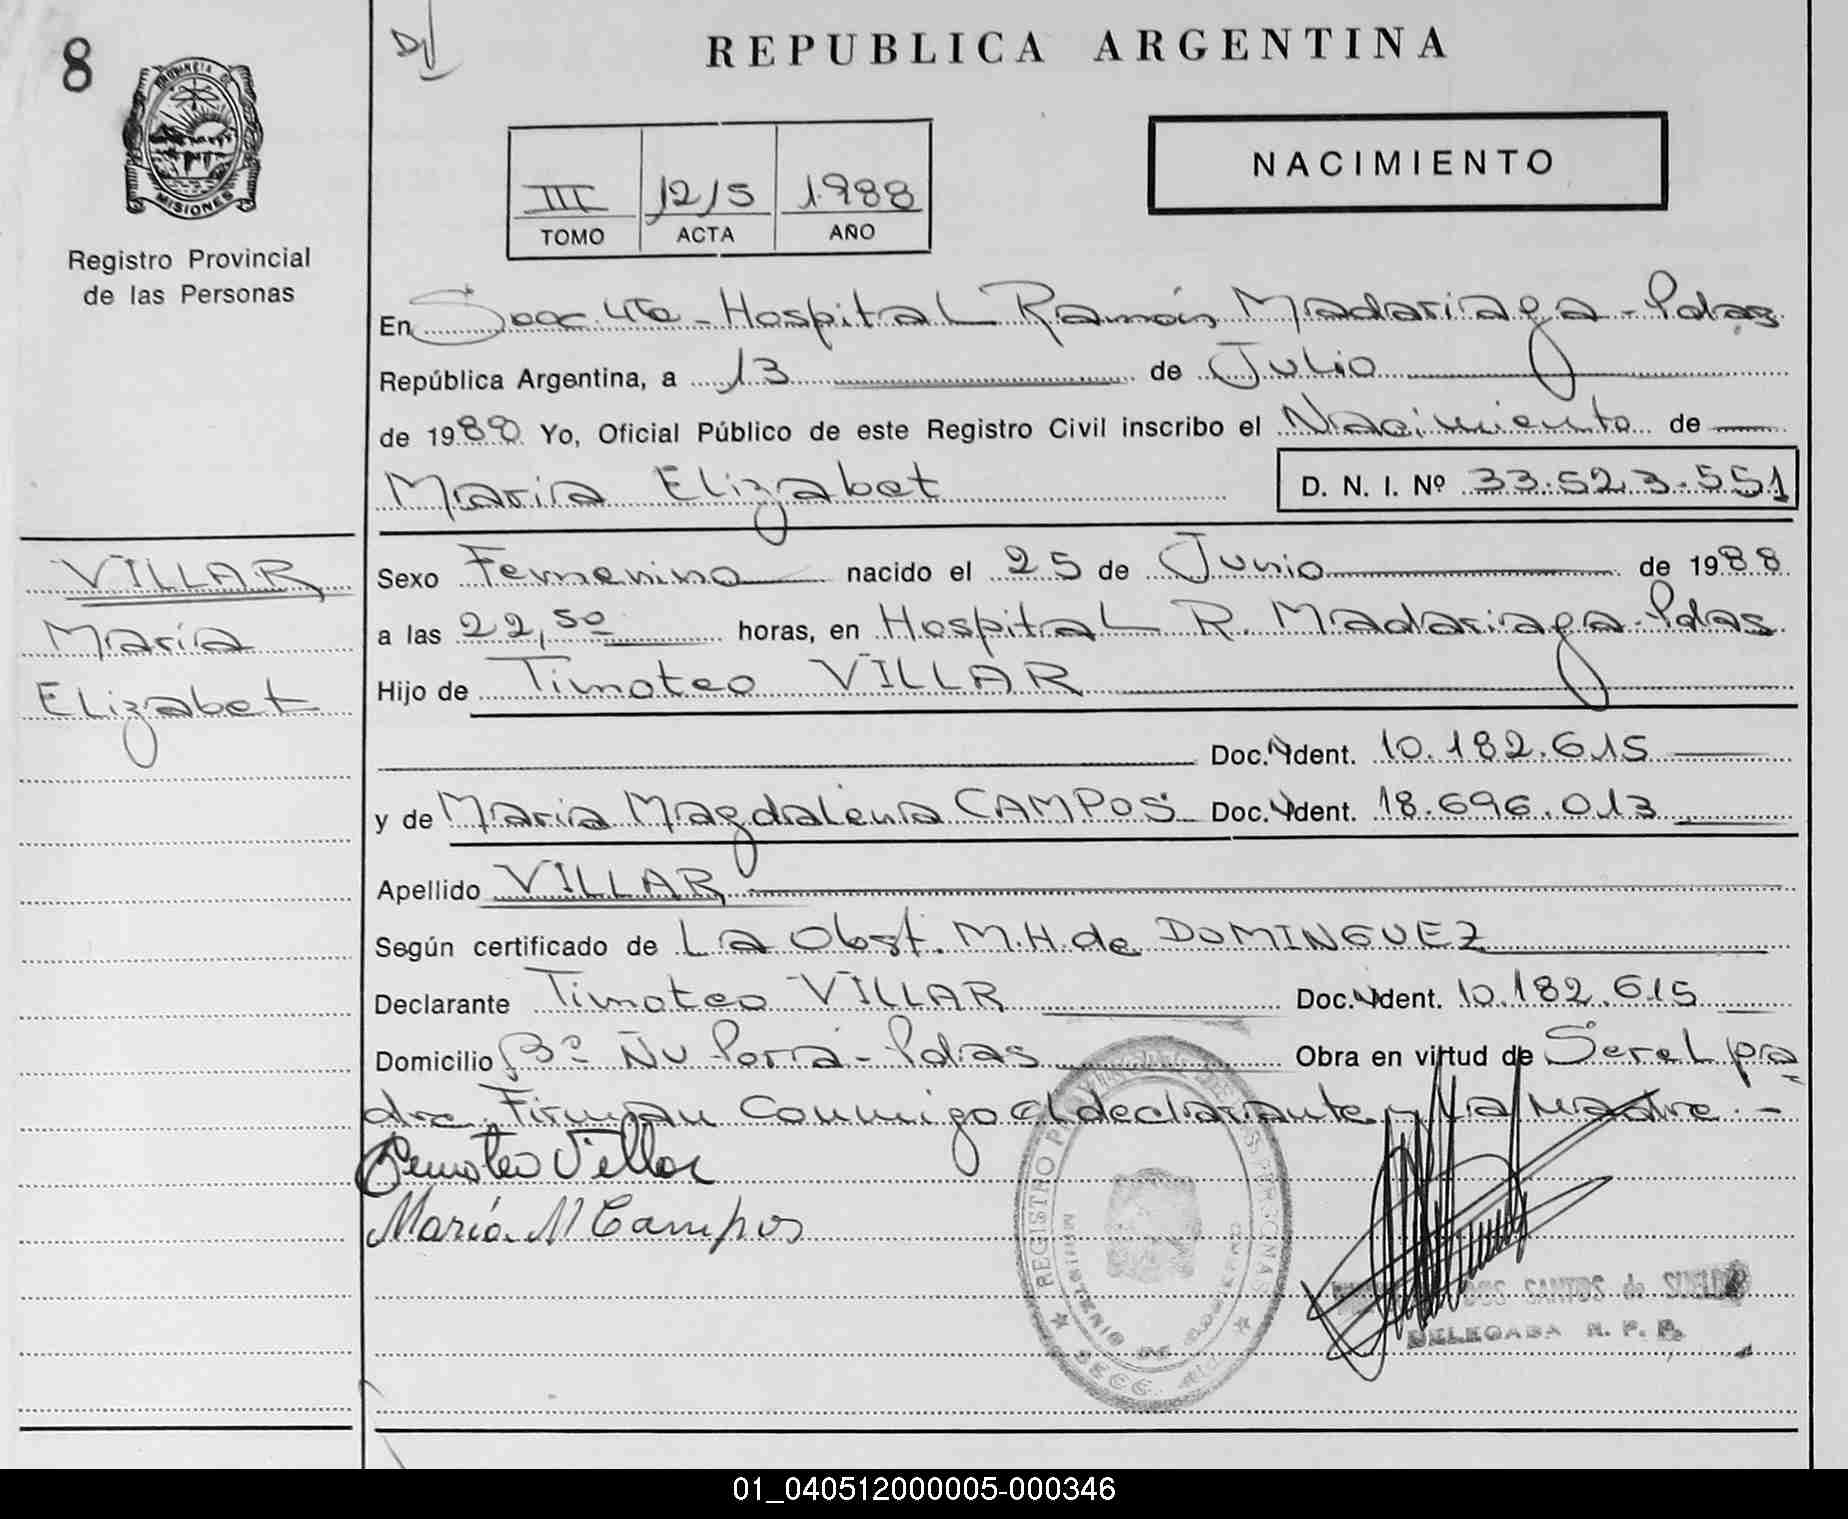 8
PROVINCIA DE
MISIONES
Registro Provincial
de las Personas
REPUBLICA ARGENTINA
NACIMIENTO
III 1215 1988
TOMO ACTA AÑO
En Secc 4ta - Hospital Ramón Madariaga - Pdas
República Argentina, a 13 de Julio
de 1988 Yo, Oficial Público de este Registro Civil inscribo el Nacimiento de
María Elizabet D. N. I. Nº 33.523.551
VILLAR
María
Elizabet
Sexo Femenino nacido el 25 de Junio de 1988
a las 22,50 horas, en Hospital R. Madariaga - Pdas
Hijo de Timoteo VILLAR
Doc. Ident. 10.182.615
y de María Magdalena CAMPOS Doc. Ident. 18.696.013
Apellido VILLAR
Según certificado de La Obst. M.H. de DOMINGUEZ
Declarante Timoteo VILLAR Doc. Ident. 10.182.615
Domicilio Bº Ñu Porá - Pdas Obra en virtud de Ser el pa
dre. Firman Conmigo el declarante y La Madre. -
Timoteo Villar
María M Campos
REGISTRO PROVINCIAL DE LAS PERSONAS
MINISTERIO DE GOBIERNO
SECC.
DOS SANTOS de SUELDO
DELEGADA R. P. P.
01_040512000005-000346